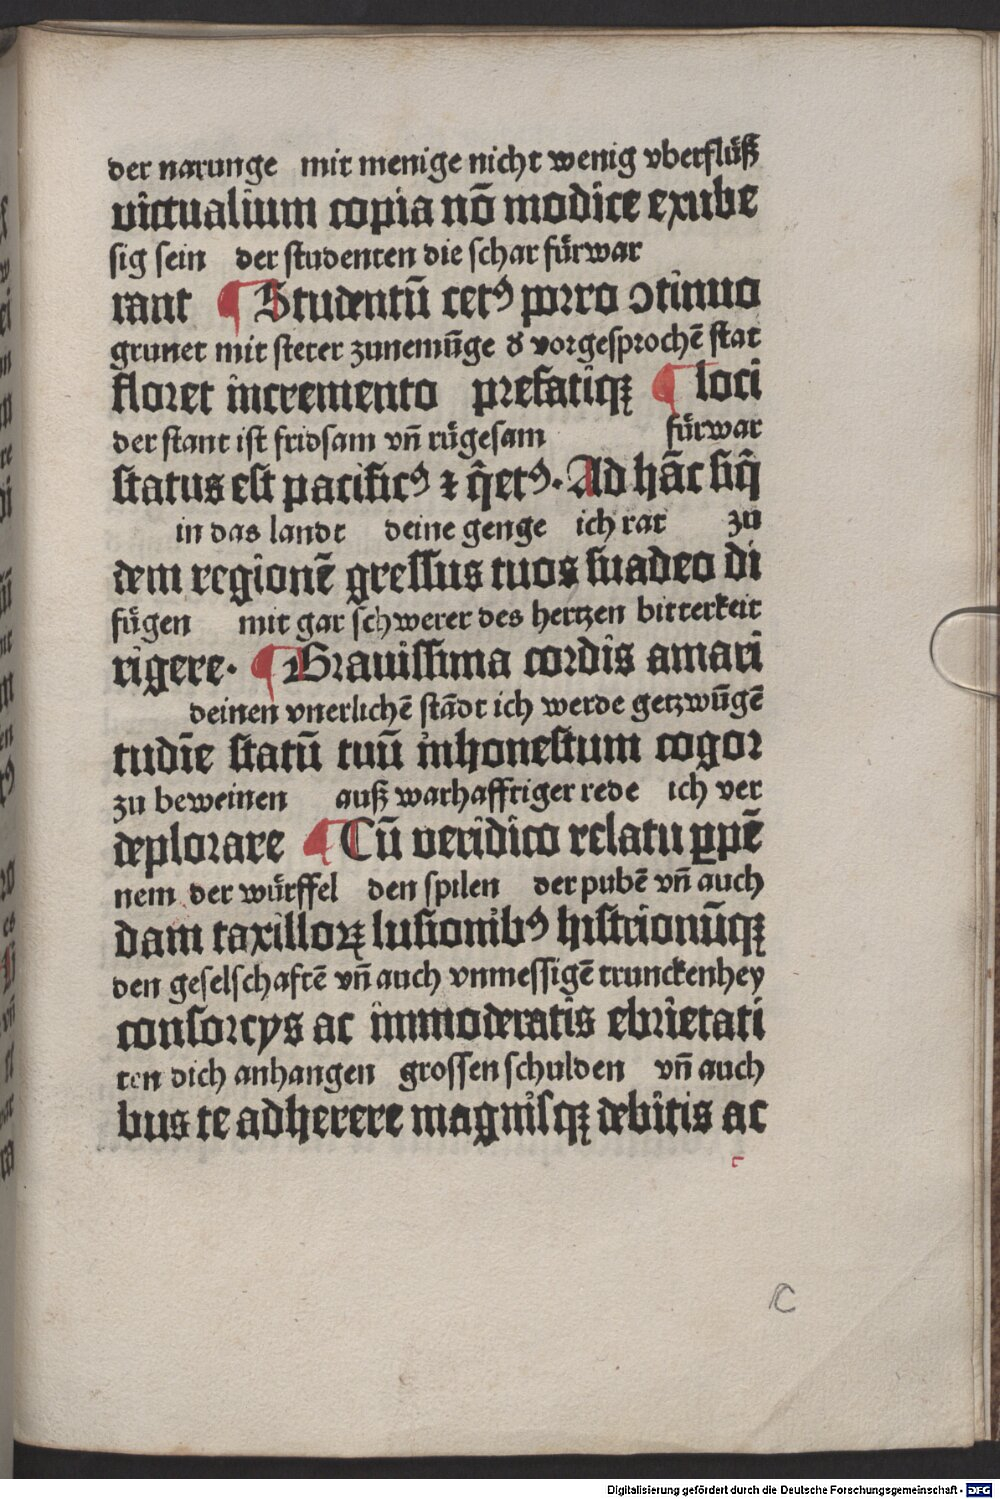 der narunge mit menige nicht wenig vberflüß
victualium copia nō modice exube
sig sein der studenten die schar fürwar
rant ¶ Studentū cetꝰ porro ↄtinuo
grunet mit steter zunemūge ð vorgesprochē stat
floret incremento prefatiqꝫ ¶ loci
der stant ist fridsam vñ rügesam fürwar
status est pacificꝰ ⁊ q̄etꝰ. Ad hāc siq̄
in das landt deine genge ich rat zu
dem regionē gressus tuos suadeo di
fügen mit gar schwerer des hertzen bitterkeit
rigere. ¶ Grauissima cordis amari
deinen vnerlichē stādt ich werde getzwūgē
tudīe statū tuū inhonestum cogor
zu beweinen auß warhafftiger rede ich ver
deplorare ¶ Cū veridico relatu ꝑpē
nem der würffel den spilen der pubē vñ auch
dam taxilloꝝ lusionibꝰ histrionūqꝫ
den geselschaftē vñ auch vnmessigē trunckenhey
consorcys ac immoderatis ebrietati
ten dich anhangen grossen schulden vñ auch
bus te adherere magnisqꝫ debitis ac
C
Digitalisierung gefördert durch die Deutsche Forschungsgemeinschaft - DFG